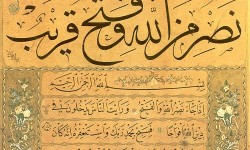 نصر من الله وفتح قريب
بسم الله الرحمن الرحيم
اذا جاء نصر الله والفتح ورايت الناس يدخلون في
دين الله افواجا فسبح بحمد ربك واستغفره انه كان